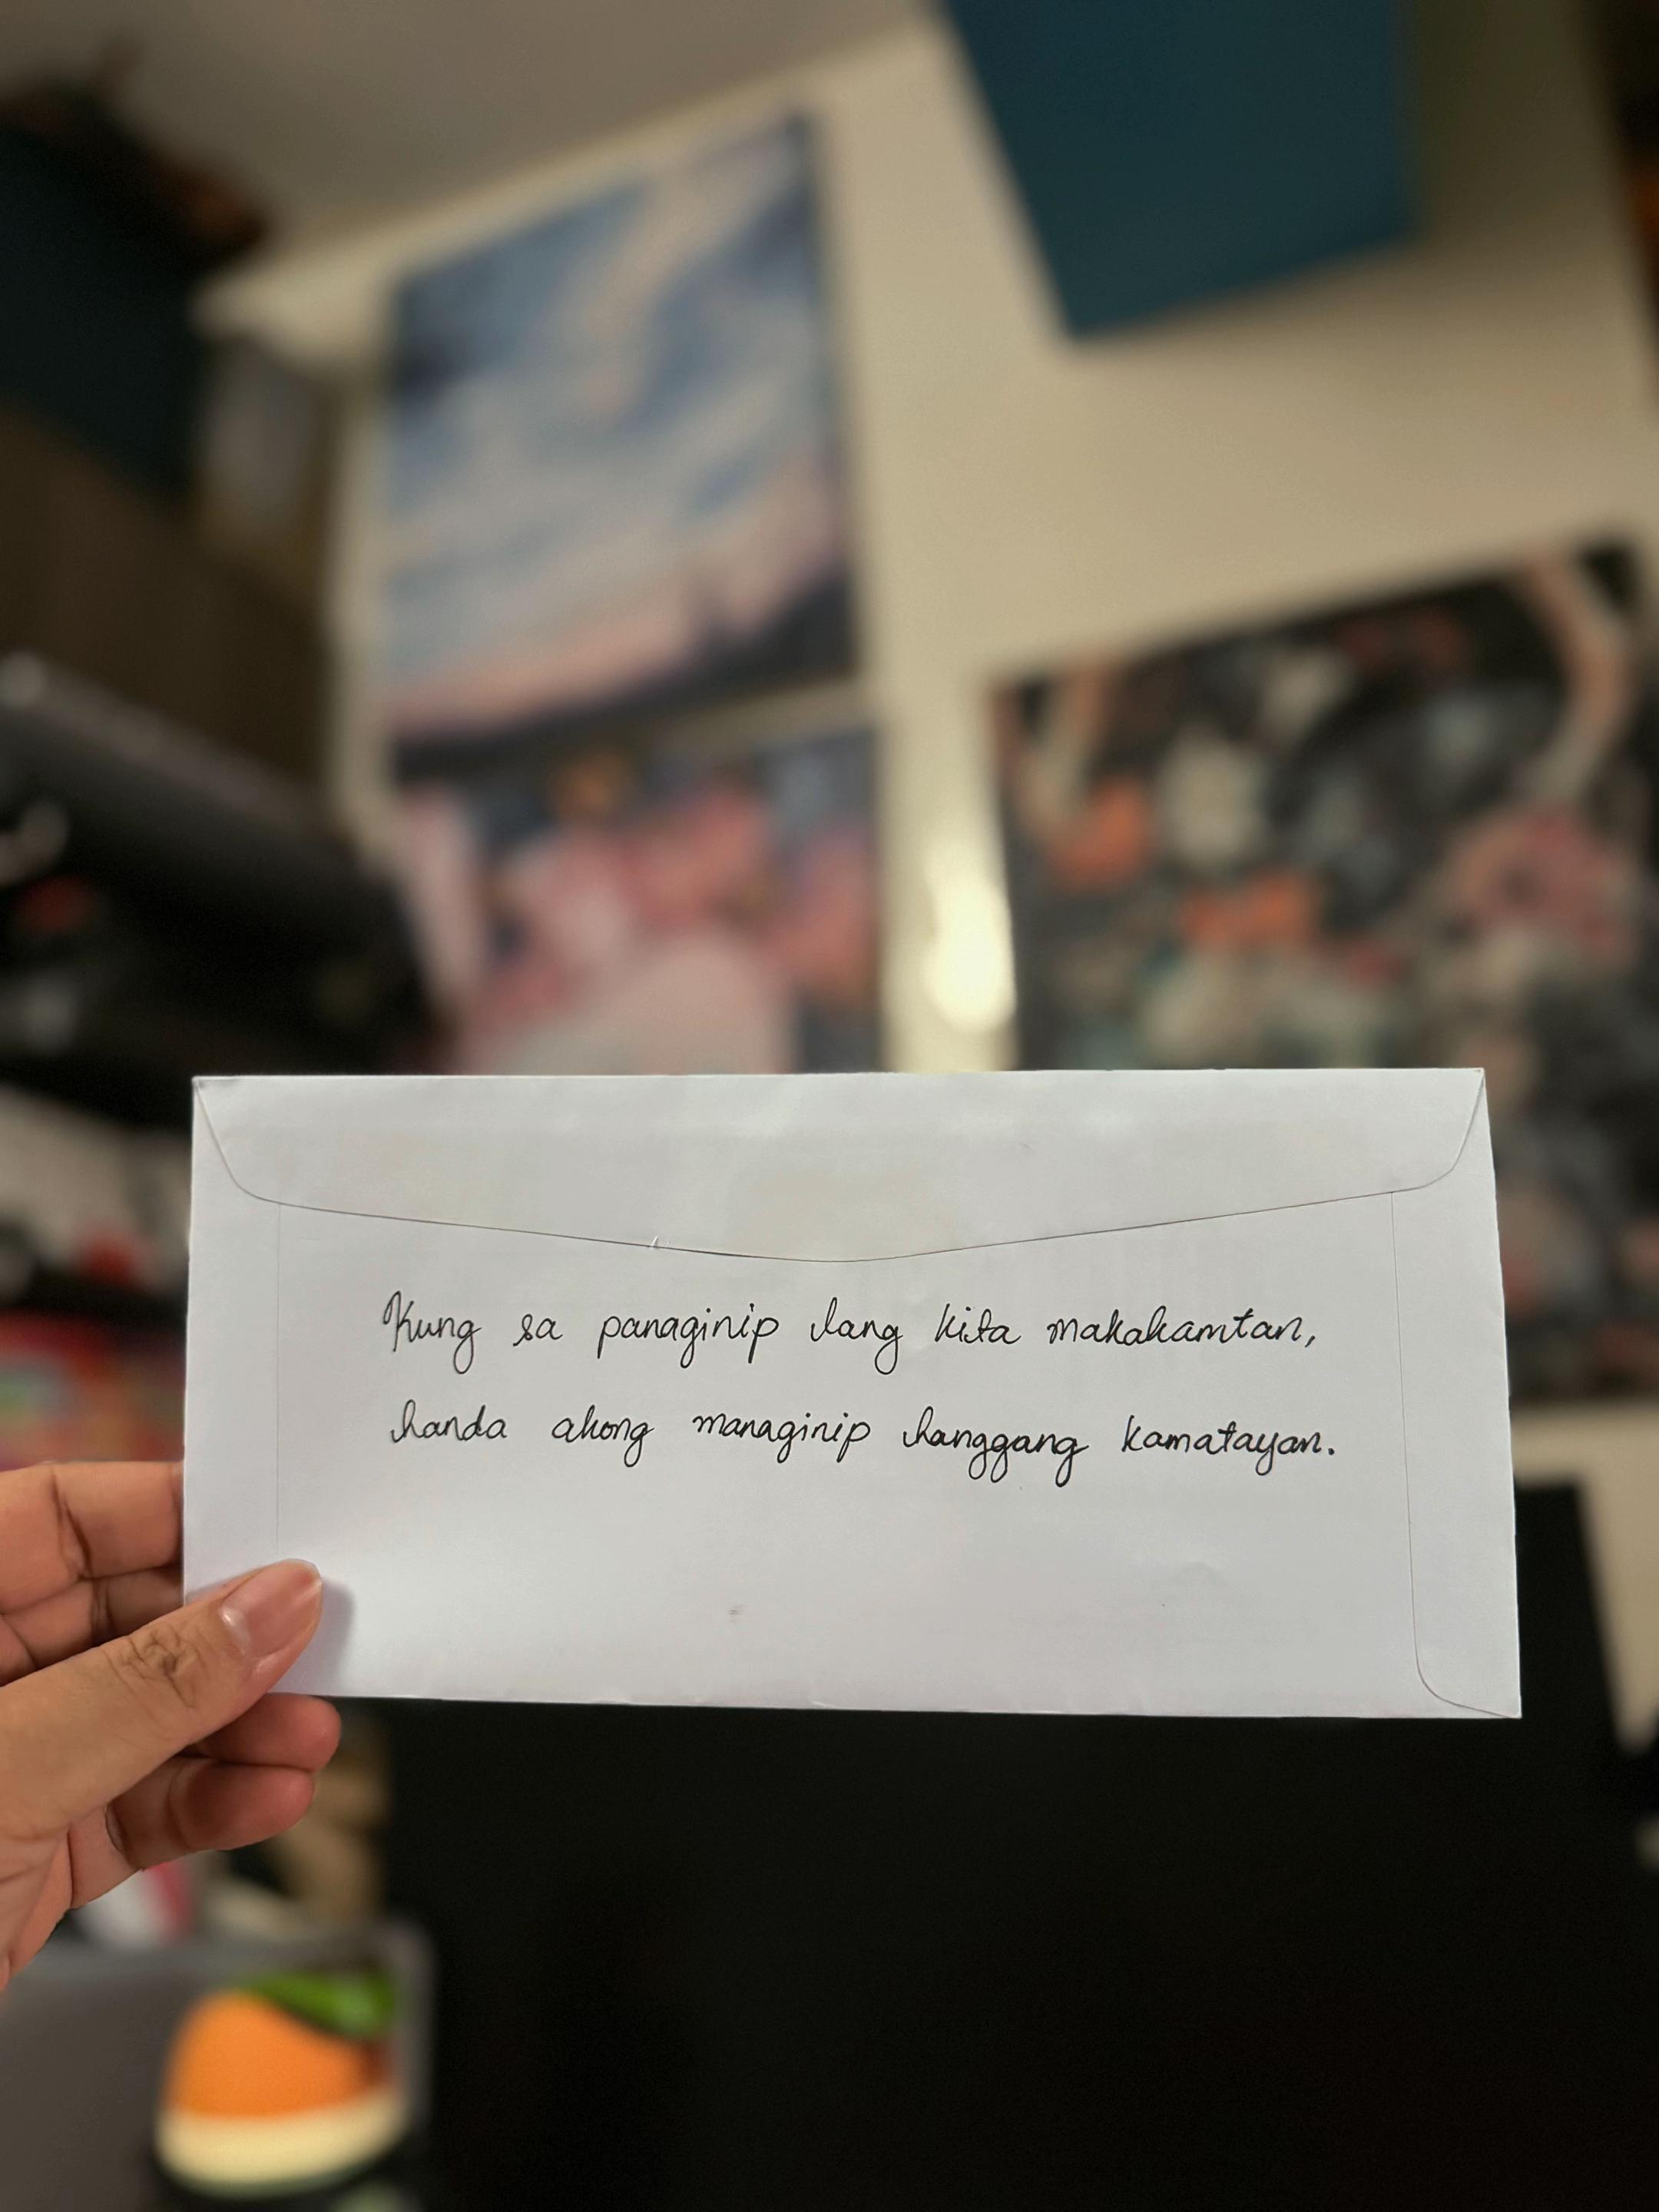 Kung sa panaginip lang kita makakamtan,
handa akong managinip hanggang kamatayan.